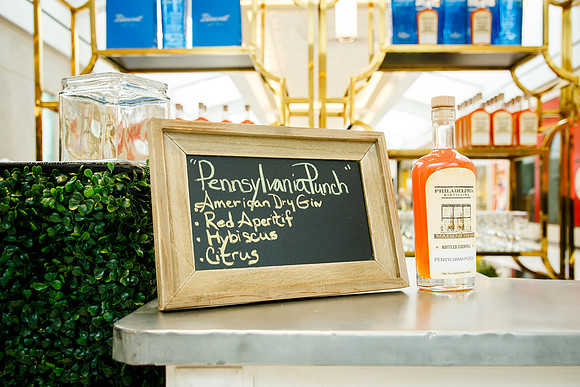 "Pennsylvania Punch"
• American Dry Gin
• Red Aperitif
• Hybiscus
• Citrus
PHILADELPHIA
DISTILLING
BOTTLED COCKTAIL
PENNSYLVANIA PUNCH